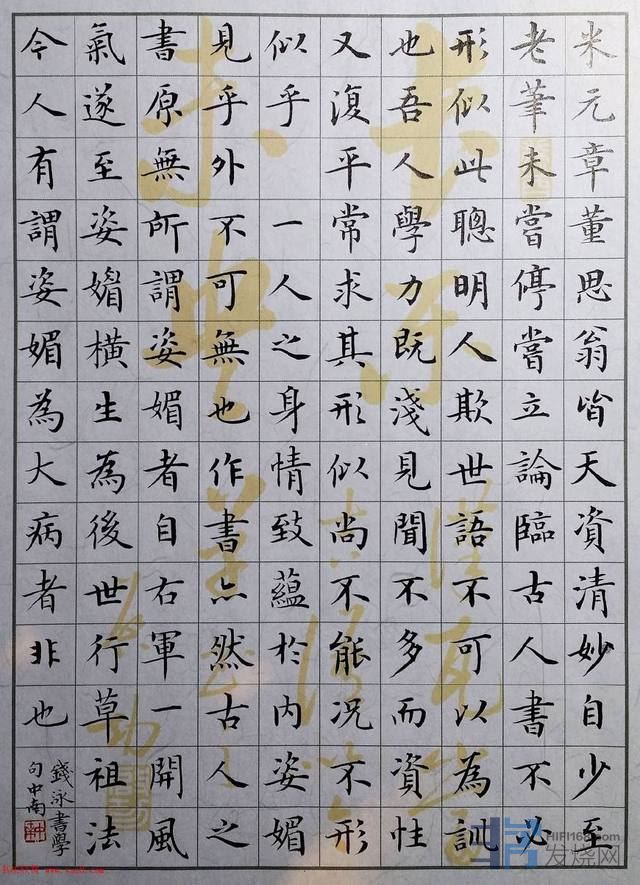 米元章董思翁皆天資清妙自少至
老筆未嘗停嘗立論臨古人書不必
形似此聰明人欺世語不可以為訓
也吾人學力既淺見聞不多而資性
又復平常求其形似尚不能況不形
似乎 一人之身情致蘊於內姿媚
見乎外不可無也作書亦然古人之
書原無所謂姿媚者自右軍一開風
氣遂至姿媚橫生為後世行草祖法
今人有謂姿媚為大病者非也
錢泳書學
句中南
HIFI168.com
发烧网